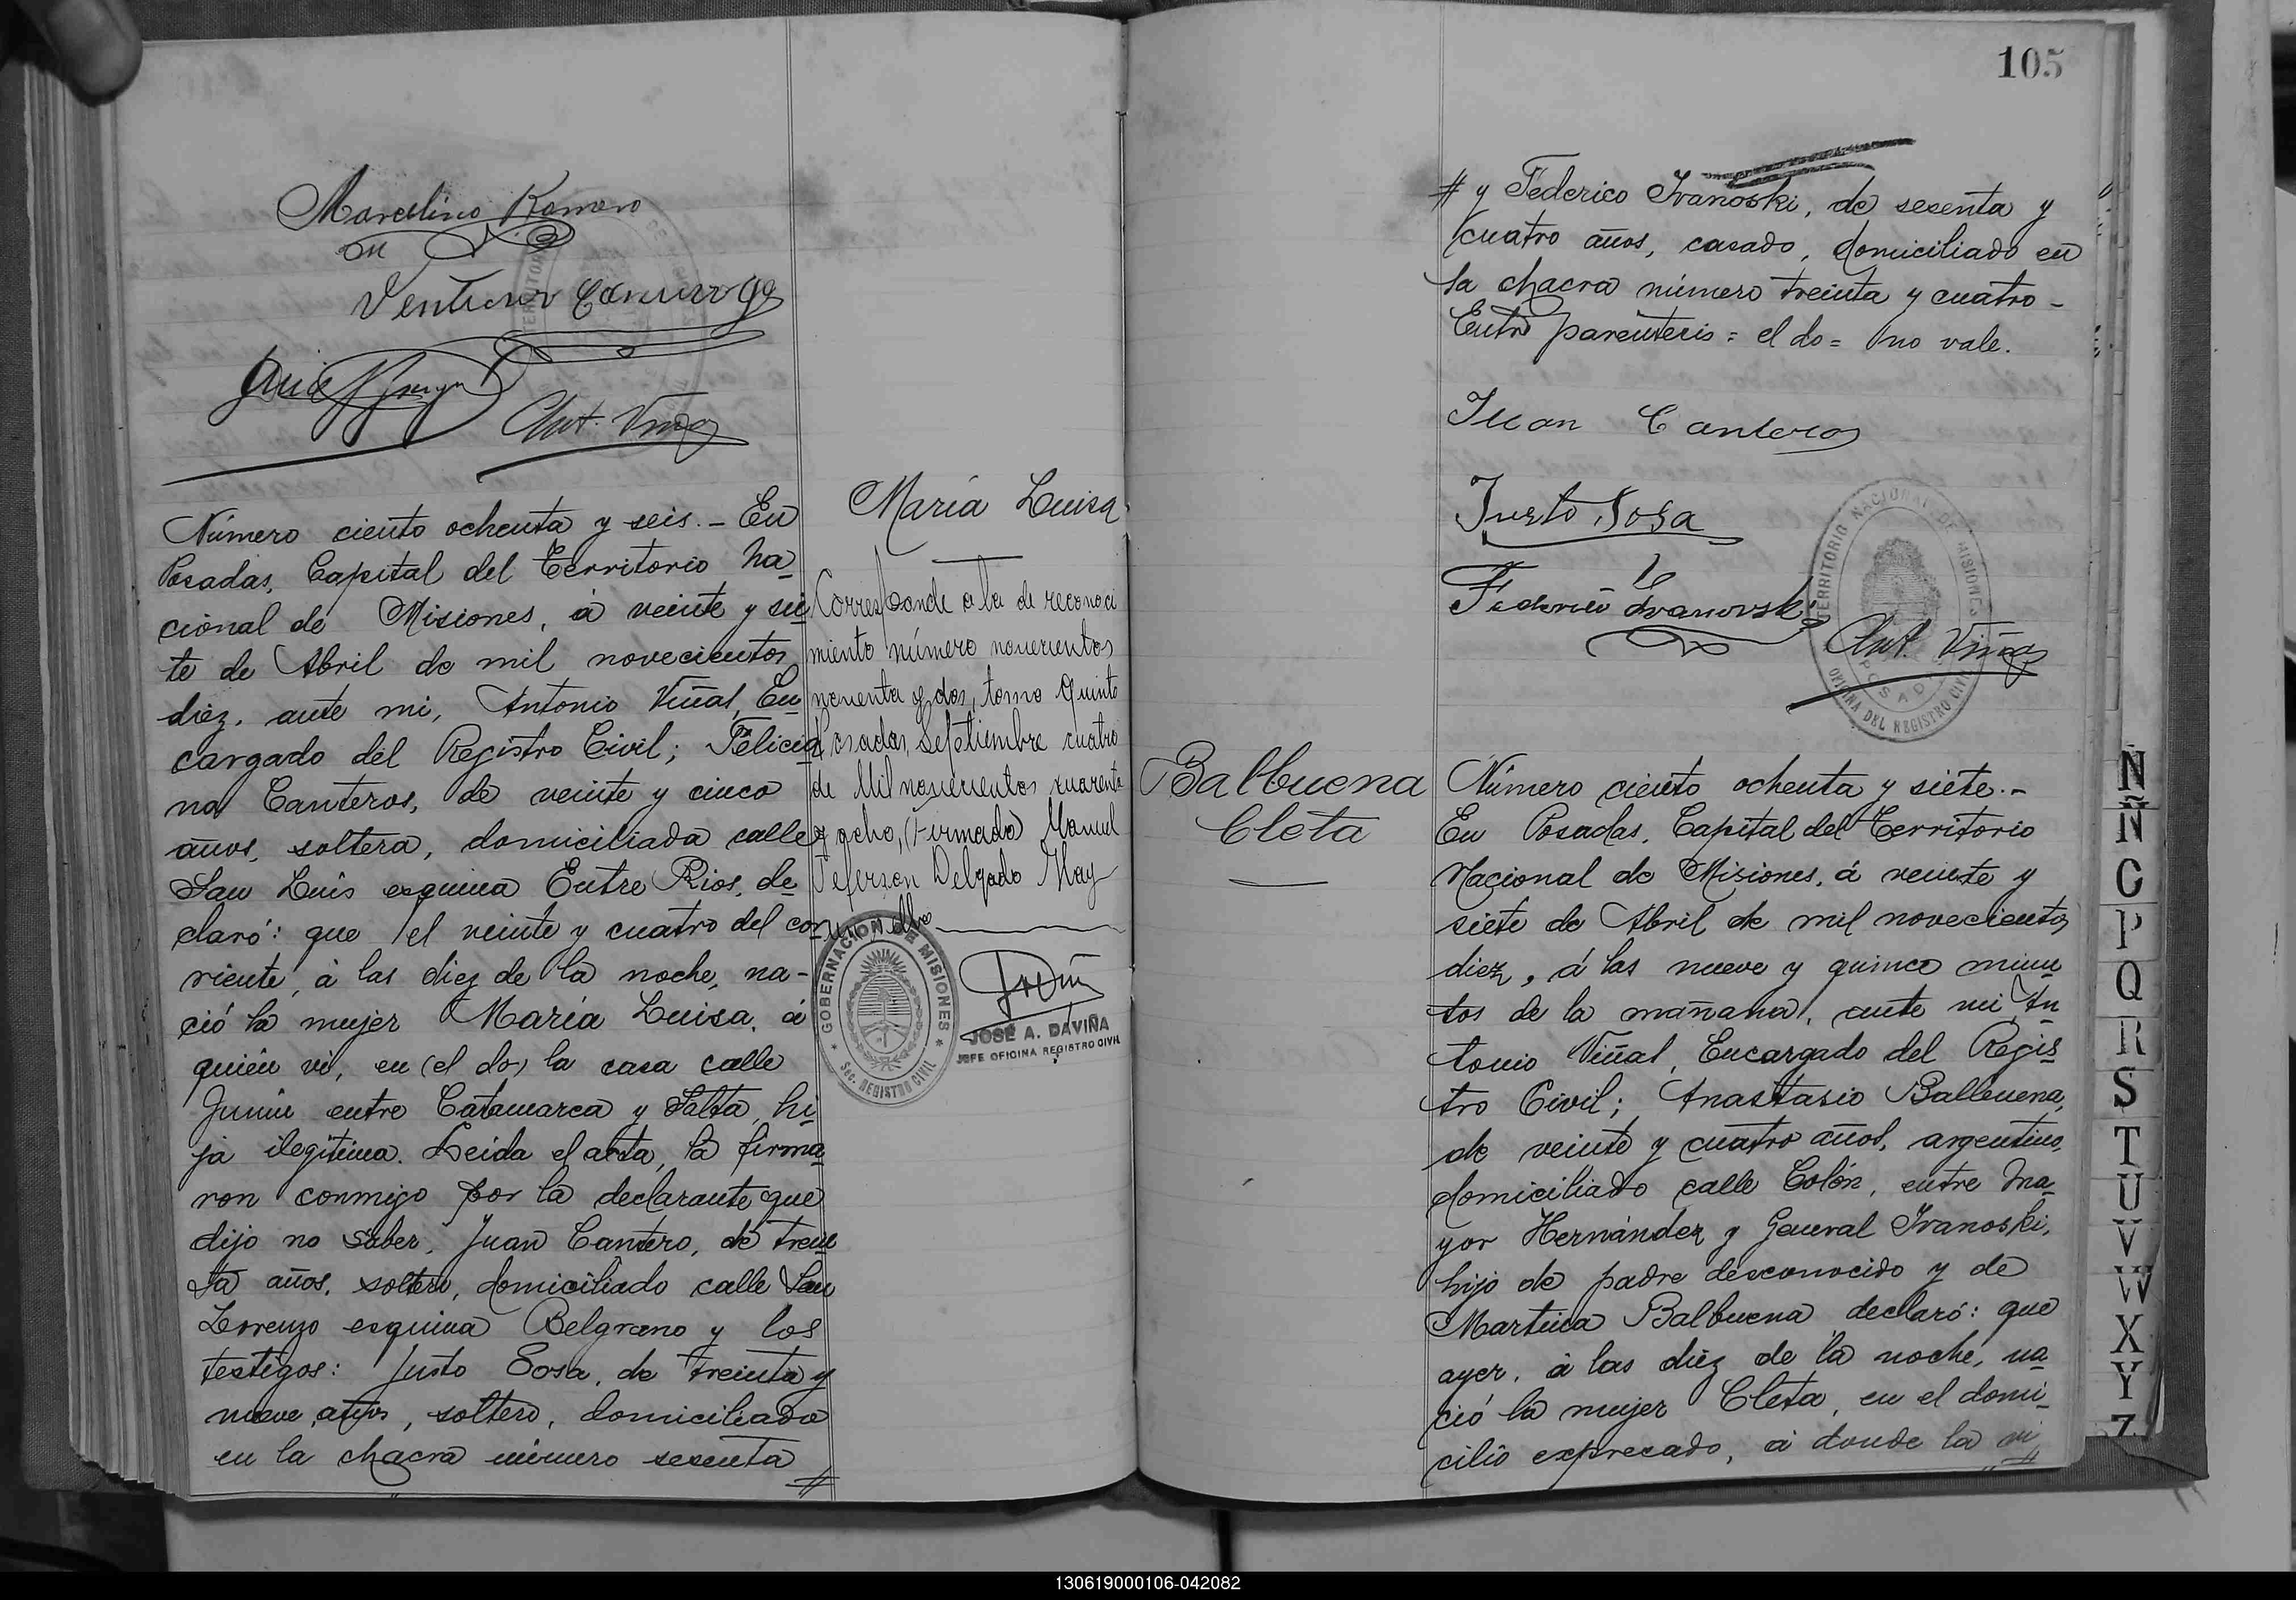 Marcelino Romero
Ant. Viñas
Número ciento ochenta y seis. - En
Posadas, Capital del Territorio Na-
cional de Misiones, á veinte y sie-
te de Abril de mil novecientos
diez, ante mi, Antonio Viñas, En-
cargado del Registro Civil; Felicia-
na Canteros, de veinte y cinco
años, soltera, domiciliada calle
San Luis esquina Entre Rios, de-
claró: que el veinte y cuatro del co-
rriente, á las diez de la noche, na-
ció la mujer María Luisa, á
quién vi, en (el do) la casa calle
Junin entre Catamarca y Salta, hi-
ja ilegítima. Leida el acta, la firma-
ron conmigo por la declarante que
dijo no saber, Juan Cantero, de trein-
ta años, soltero, domiciliado calle San
Lorenzo esquina Belgrano y los
testigos: Justo Sosa, de treinta y
nueve años, soltero, domiciliado
en la chacra número sesenta #
María Luisa
Corresponde a la de reconoci
miento número novecientos
noventa y dos, tomo Quinto
Posadas, Septiembre cuatro
de Mil novecientos cuarenta
y ocho, (Firmado) Manuel
Jeferson Delgado Hay
un sello
GOBERNACION DE MISIONES
Sec. REGISTRO CIVIL
JOSÉ A. DAVIÑA
JEFE OFICINA REGISTRO CIVIL
105
# y Federico Ivanoski, de sesenta y
cuatro años, casado, domiciliado en
la chacra número treinta y cuatro -
Entre parentesis = el do = no vale.
Juan Canteros
Justo Sosa
Federico Ivanovski
Ant. Viñas
TERRITORIO NACIONAL DE MISIONES
POSADAS
OFICINA DEL REGISTRO CIVIL
Balbuena
Cleta
Número ciento ochenta y siete. -
En Posadas, Capital del Territorio
Nacional de Misiones, á veinte y
siete de Abril de mil novecientos
diez, á las nueve y quince minu
tos de la mañana, ante mi An-
tonio Viñas, Encargado del Regis-
tro Civil; Anastasio Balbuena,
de veinte y cuatro años, argentino,
domiciliado calle Colón, entre Ma-
yor Hernández y General Ivanoski,
hijo de padre desconocido y de
Martina Balbuena declaró: que
ayer, á las diez de la noche, na-
ció la mujer Cleta, en el domi-
cilio expresado, á donde la vi #
N
Ñ
P
Q
R
S
T
U
V
W
X
Y
Z
130619000106-042082